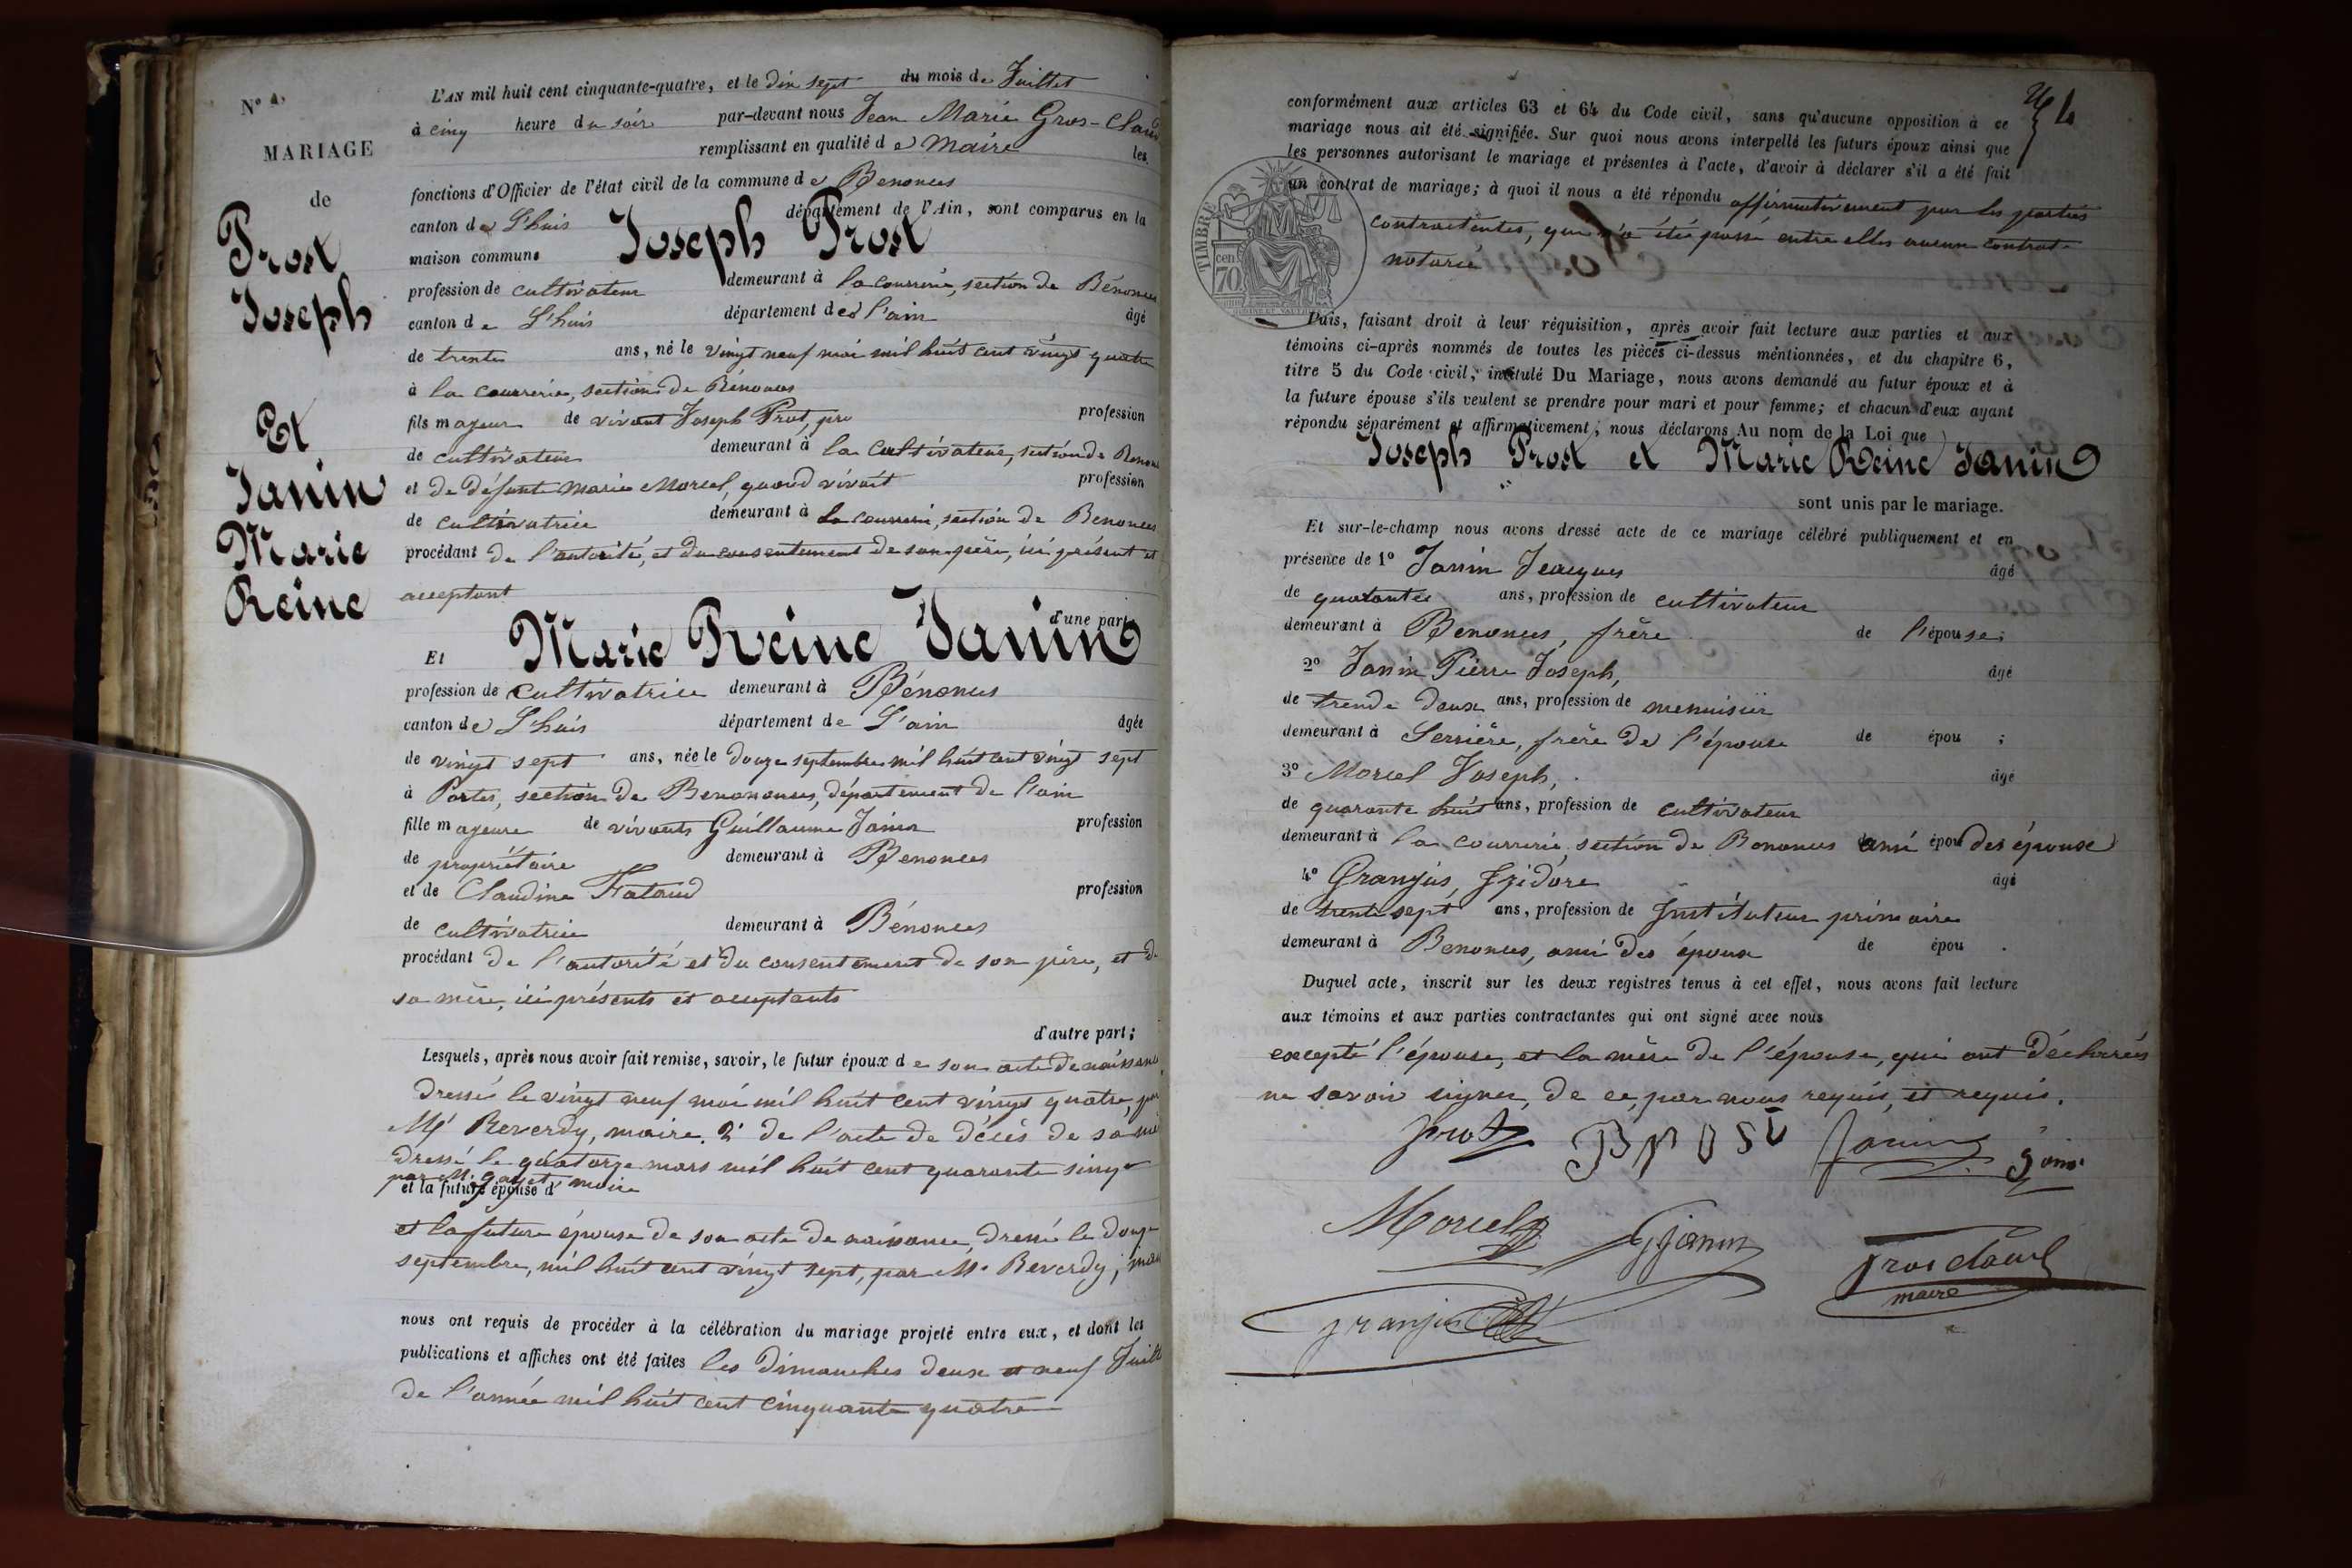 N° 4.
MARIAGE
de
Prost
Joseph
Et
Janin
Marie
Reine
L'AN mil huit cent cinquante-quatre, et le dix sept du mois de Juillet
à cinq heure du soir par-devant nous Jean Marie Gros-Claud
remplissant en qualité de Maire les
fonctions d'Officier de l'état civil de la commune de Benonces
canton de L'huis département de l'Ain, sont comparus en la
maison commune Joseph Prost
profession de cultivateur demeurant à la courrerie, section de Bénonces
canton de L'huis département de l'ain âgé
de trente ans, né le vingt neuf mai mil huit cent vingt quatre
à la courrerie, section de Bénonces
fils majeur de vivant Joseph Prost, père profession
de cultivateur demeurant à la Cultivateur, section de Benonces
et de défunte Marie Morcel, quand vivait profession
de cultivatrice demeurant à la courrerie, section de Benonces
procédant de l'autorité, et du consentement de son père, ici présent et
acceptant
d'une part,
Et Marie Reine Janin
profession de cultivatrice demeurant à Bénonces
canton de L'huis département de L'ain âgée
de vingt sept ans, née le douze septembre mil huit cent vingt sept
à Portes, section de Benononces, département de l'ain
fille majeure de vivants Guillaume Janin profession
de propriétaire demeurant à Benonces
et de Claudine Fataud profession
de cultivatrice demeurant à Bénonces
procédant de l'autorité et du consentement de son père, et de
sa mère, ici présents et acceptants
d'autre part;
Lesquels, après nous avoir fait remise, savoir, le futur époux de son acte de naissance
dressé le vingt neuf mai mil huit cent vingt quatre, par
Mr Reverdy, maire. 2° de l'acte de décès de sa mè
dressé le quatorze mars mil huit cent quarante sinq
par M. gayet maire
et la future épouse d
et la future épouse de son acte de naissance, dressé le douze
septembre, mil huit cent vingt sept, par Mr Reverdy, mai
nous ont requis de procéder à la célébration du mariage projeté entre eux, et dont les
publications et affiches ont été faites les Dimanches deux et neuf Juill
de l'année mil huit cent cinquante quatre
4
conformément aux articles 63 et 64 du Code civil, sans qu'aucune opposition à ce
mariage nous ait été signifiée. Sur quoi nous avons interpellé les futurs époux ainsi que
les personnes autorisant le mariage et présentes à l'acte, d'avoir à déclarer s'il a été fait
un contrat de mariage; à quoi il nous a été répondu affirmativement par les parties
contractentes, qui n'a étée passé entre elles aucun contrat
notarié
TIMBRE
cen
70
Puis, faisant droit à leur réquisition, après avoir fait lecture aux parties et aux
témoins ci-après nommés de toutes les pièces ci-dessus mentionnées, et du chapitre 6,
titre 5 du Code civil, intitulé Du Mariage, nous avons demandé au futur époux et à
la future épouse s'ils veulent se prendre pour mari et pour femme; et chacun d'eux ayant
répondu séparément et affirmativement, nous déclarons Au nom de la Loi que
Joseph Prost et Marie Reine Janin
sont unis par le mariage.
Et sur-le-champ nous avons dressé acte de ce mariage célébré publiquement et en
présence de 1° Janin Jeacques âgé
de quatantes ans, profession de cultivateur
demeurant à Benonces, frère de l'épouse;
2° Janin Pierre Joseph, âgé
de trende deux ans, profession de menuisier
demeurant à Serrière, frère de l'épouse de épou ;
3° Morcel Joseph, âgé
de quarante huit ans, profession de cultivateur
demeurant à la courrerie, section de Bononces ami épou des épouse
4° Granjus, Izidore âgé
de trente sept ans, profession de Instituteur primaire
demeurant à Benonces, ami des époux de épou .
Duquel acte, inscrit sur les deux registres tenus à cet effet, nous avons fait lecture
aux témoins et aux parties contractantes qui ont signé avec nous
excepté l'épouse, et la mère de l'épouse, qui ont déclarées
ne savoir signer, de ce, par nous requis, et requis.
prost Prost Janin Janin
Morcel G Janin
gros claud
maire
granjus